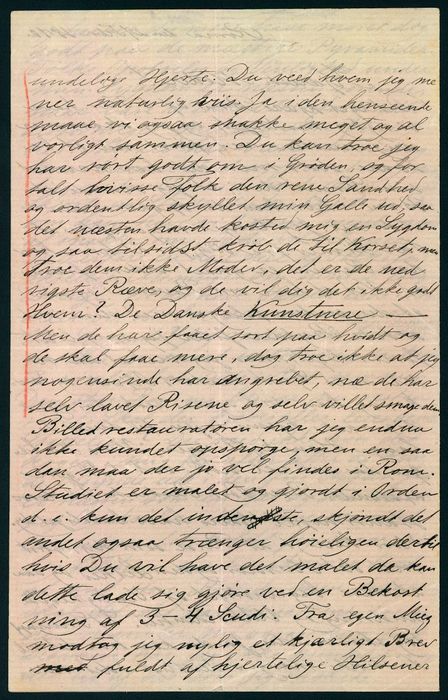 undelige Hjerte. Du veed hvem jeg me
ner naturligviis. Ja i den henseende
maae vi ogsaa snakke meget og al
vorligt sammen. Du kan troe jeg
har rört godt om i Gröden, og for
talt lovisse Folk den rene Sandhed
og ordentlig skyllet min Galle ud, saa
det næsten havde kostet mig en Sygdom
og saa tilsidst kröb de til Korset, men
troe dem ikke Moder, det er de ned
rigste Ræve, og de vil dig det ikke godt
Hvem? De Danske Kunstnere —
Men de har faaet sort paa hvidt og
de skal faae mere, dog troe ikke at jeg
nogensinde har angrebet, næ de har
selv lavet Risene og selv villet smage dem.
Billedrestauratören har jeg endnu
ikke kundet opspörge, men en saa
dan maa der jo vel findes i Rom.
Studiet er malet og gjordt i Orden
d. e. kun det inderste, skjöndt det
andet ogsaa trænger höiligen dertil
hvis Du vil have det malet da kan
dette lade sig gjöre ved en Bekost
ning af 3 – 4 Scudi. Fra egen Mieg
modtog jeg nylig et kjærligt Brev
fuldt af hjertelige Hilsener